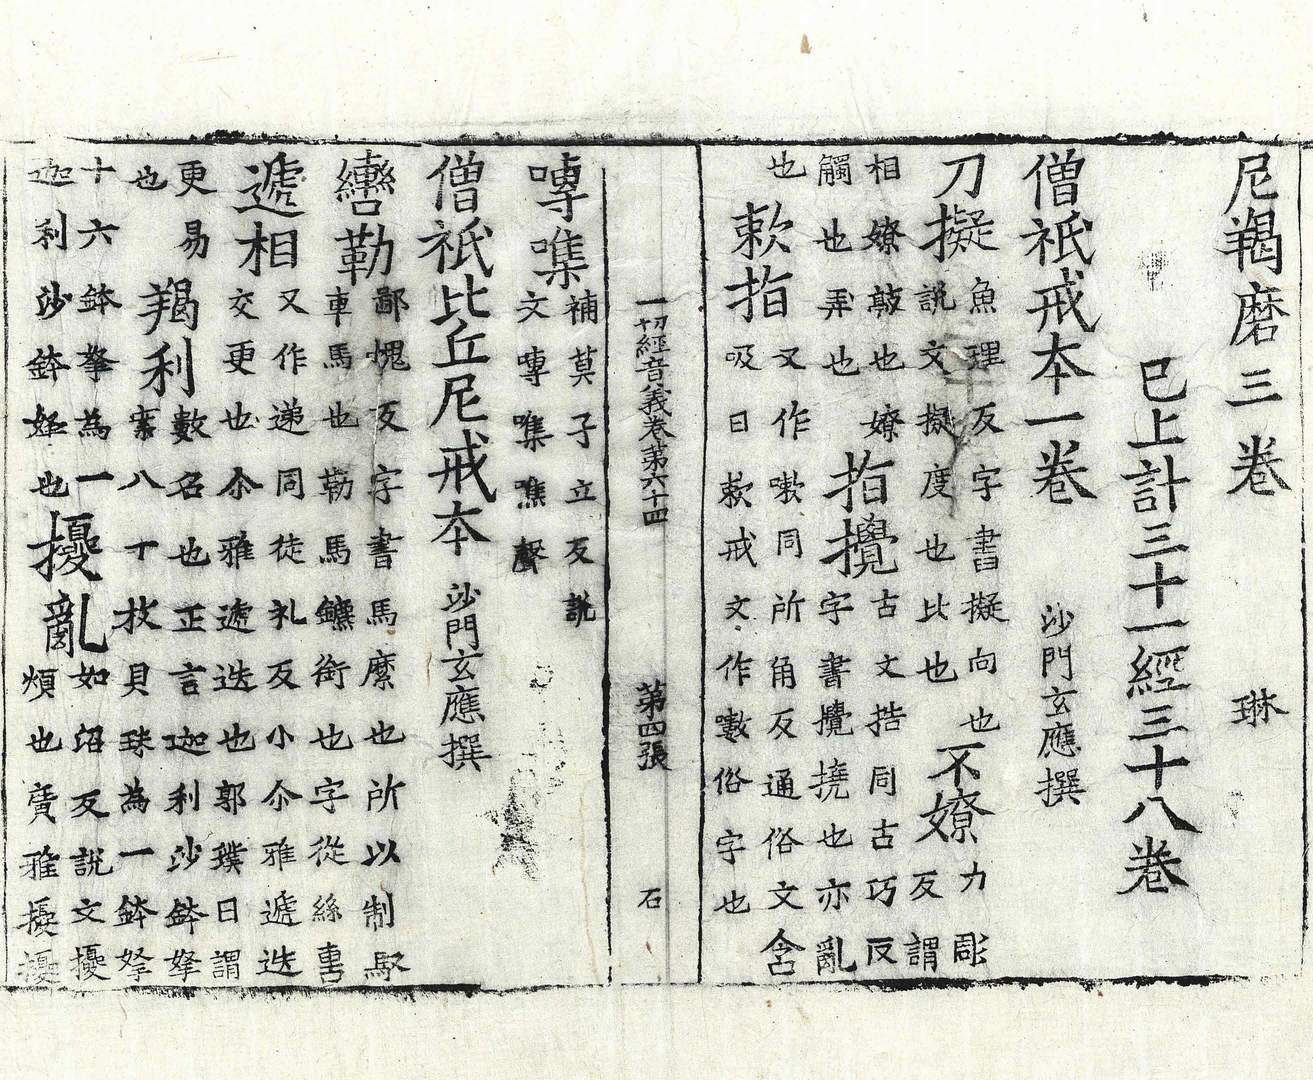 尼羯磨三卷 琳
已上計三十一經三十八卷
僧祇戒本一卷 沙門玄應撰
刀擬 魚理反字書擬向也
說文擬度也比也 不嫽 力彫
反謂
相嫽敲也嫽
觸也弄也 指攪 古文捁同古巧反
字書攪撓也亦亂
也 欶指 又作嗽同所角反通俗文含
吸曰欶戒文作嗽俗字也
一切經音義卷第六十四 第四張 石
嚩噍 補莫子立反說
文嚩噍噍聲
僧祇比丘尼戒本 沙門玄應撰
轡勒 鄙愧反字書馬縻也所以制馭
車馬也勒馬鑣銜也字從絲軎
遞相 又作递同徒礼反小尒雅遞迭
交更也尒雅遞迭也郭璞曰謂
更易
也 羯利 數名也正言迦利沙鉢拏
案八十枚貝珠為一鉢拏
十六鉢拏為一
迦利沙鉢拏也 擾亂 如沼反說文擾
煩也廣雅擾擾